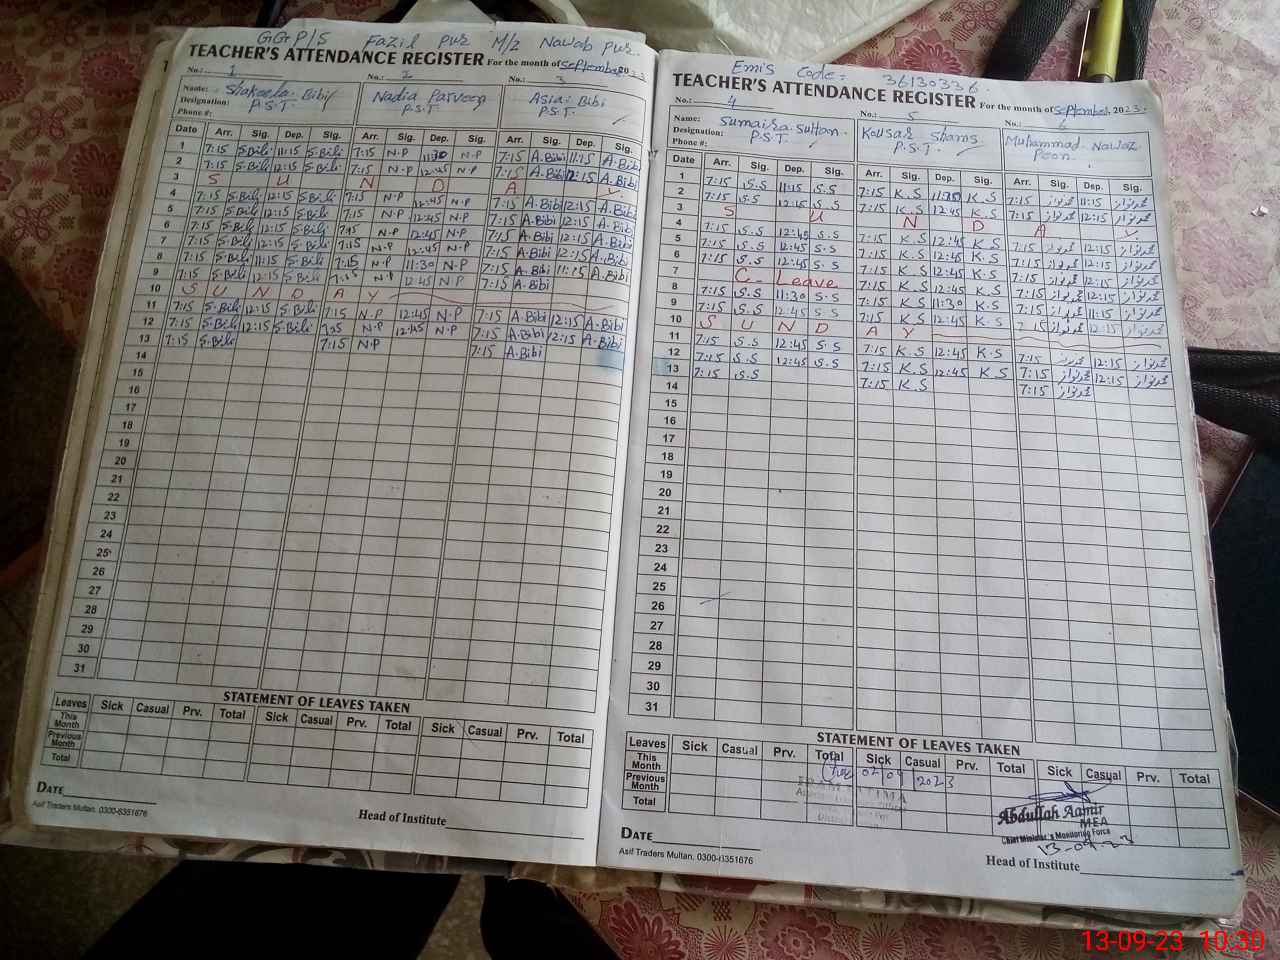 GGP/S Fazil Pur M/Z Nawab Pur.
TEACHER'S ATTENDANCE REGISTER For the month of September 2023
No.: 1 No.: 2 No.: 3
Name: Shakeela Bibi Nadia Parveen Asia Bibi
Designation: P.S.T. P.S.T. P.S.T.
Phone #:
Date Arr. Sig. Dep. Sig. Arr. Sig. Dep. Sig. Arr. Sig. Dep. Sig.
1 7:15 S.Bibi 11:15 S.Bibi 7:15 N.P 11:30 N.P 7:15 A.Bibi 11:15 A.Bibi
2 7:15 S.Bibi 12:15 S.Bibi 7:15 N.P 12:45 N.P 7:15 A.Bibi 12:15 A.Bibi
3 S U N D A Y
4 7:15 S.Bibi 12:15 S.Bibi 7:15 N.P 12:45 N.P 7:15 A.Bibi 12:15 A.Bibi
5 7:15 S.Bibi 12:15 S.Bibi 7:15 N.P 12:45 N.P 7:15 A.Bibi 12:15 A.Bibi
6 7:15 S.Bibi 12:15 S.Bibi 7:15 N.P 12:45 N.P 7:15 A.Bibi 12:15 A.Bibi
7 7:15 S.Bibi 12:15 S.Bibi 7:15 N.P 12:45 N.P 7:15 A.Bibi 12:15 A.Bibi
8 7:15 S.Bibi 11:15 S.Bibi 7:15 N.P 11:30 N.P 7:15 A.Bibi 11:15 A.Bibi
9 7:15 S.Bibi 12:15 S.Bibi 7:15 N.P 12:45 N.P 7:15 A.Bibi
10 S U N D A Y
11 7:15 S.Bibi 12:15 S.Bibi 7:15 N.P 12:45 N.P 7:15 A.Bibi 12:15 A.Bibi
12 7:15 S.Bibi 12:15 S.Bibi 7:15 N.P 12:45 N.P 7:15 A.Bibi 12:15 A.Bibi
13 7:15 S.Bibi 7:15 N.P 7:15 A.Bibi
14
15
16
17
18
19
20
21
22
23
24
25
26
27
28
29
30
31
STATEMENT OF LEAVES TAKEN
Leaves Sick Casual Prv. Total Sick Casual Prv. Total Sick Casual Prv. Total
This Month
Previous Month
Total
DATE
Asif Traders Multan. 0300-6351676
Head of Institute
Emis Code: 36130336.
TEACHER'S ATTENDANCE REGISTER For the month of September, 2023.
No.: 4 No.: 5 No.: 6
Name: Sumaira Sultan Kousar Shams Muhammad Nawaz
Designation: P.S.T. P.S.T. Peon
Phone #:
Date Arr. Sig. Dep. Sig. Arr. Sig. Dep. Sig. Arr. Sig. Dep. Sig.
1 7:15 S.S 11:15 S.S 7:15 K.S 11:15 K.S 7:15 محمد نواز 11:15 محمد نواز
2 7:15 S.S 12:45 S.S 7:15 K.S 12:45 K.S 7:15 محمد نواز 12:15 محمد نواز
3 S U N D A Y
4 7:15 S.S 12:45 S.S 7:15 K.S 12:45 K.S 7:15 محمد نواز 12:15 محمد نواز
5 7:15 S.S 12:45 S.S 7:15 K.S 12:45 K.S 7:15 محمد نواز 12:15 محمد نواز
6 7:15 S.S 12:45 S.S 7:15 K.S 12:45 K.S 7:15 محمد نواز 12:15 محمد نواز
7 C-Leave 7:15 K.S 12:45 K.S 7:15 محمد نواز 12:15 محمد نواز
8 7:15 S.S 11:30 S.S 7:15 K.S 11:30 K.S 7:15 محمد نواز 11:15 محمد نواز
9 7:15 S.S 12:45 S.S 7:15 K.S 12:45 K.S 7:15 محمد نواز 12:15 محمد نواز
10 S U N D A Y
11 7:15 S.S 12:45 S.S 7:15 K.S 12:45 K.S 7:15 محمد نواز 12:15 محمد نواز
12 7:15 S.S 12:45 S.S 7:15 K.S 12:45 K.S 7:15 محمد نواز 12:15 محمد نواز
13 7:15 S.S 7:15 K.S 7:15 محمد نواز
14
15
16
17
18
19
20
21
22
23
24
25
26
27
28
29
30
31
STATEMENT OF LEAVES TAKEN
Leaves Sick Casual Prv. Total Sick Casual Prv. Total Sick Casual Prv. Total
This Month
Previous Month
Total
02 09 2023
Abdullah Aamir
MEA
Chief Minister's Monitoring Force
13-09-23
DATE
Asif Traders Multan. 0300-6351676
Head of Institute
13-09-23 10:30